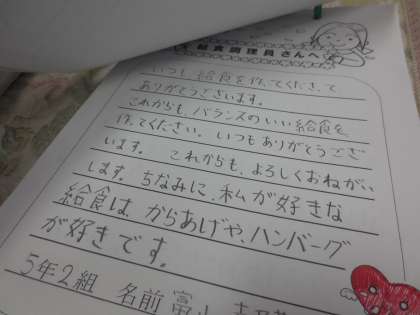 給食調理員さんへ
いつも給食を作ってくださって
ありがとうございます。
これからも、バランスのいい給食を
作ってください。いつもありがとうござ
います。これからも、よろしくおねがい
します。ちなみに、私が好きな
給食は、からあげや、ハンバーグ
が好きです。
5年2組 名前 富